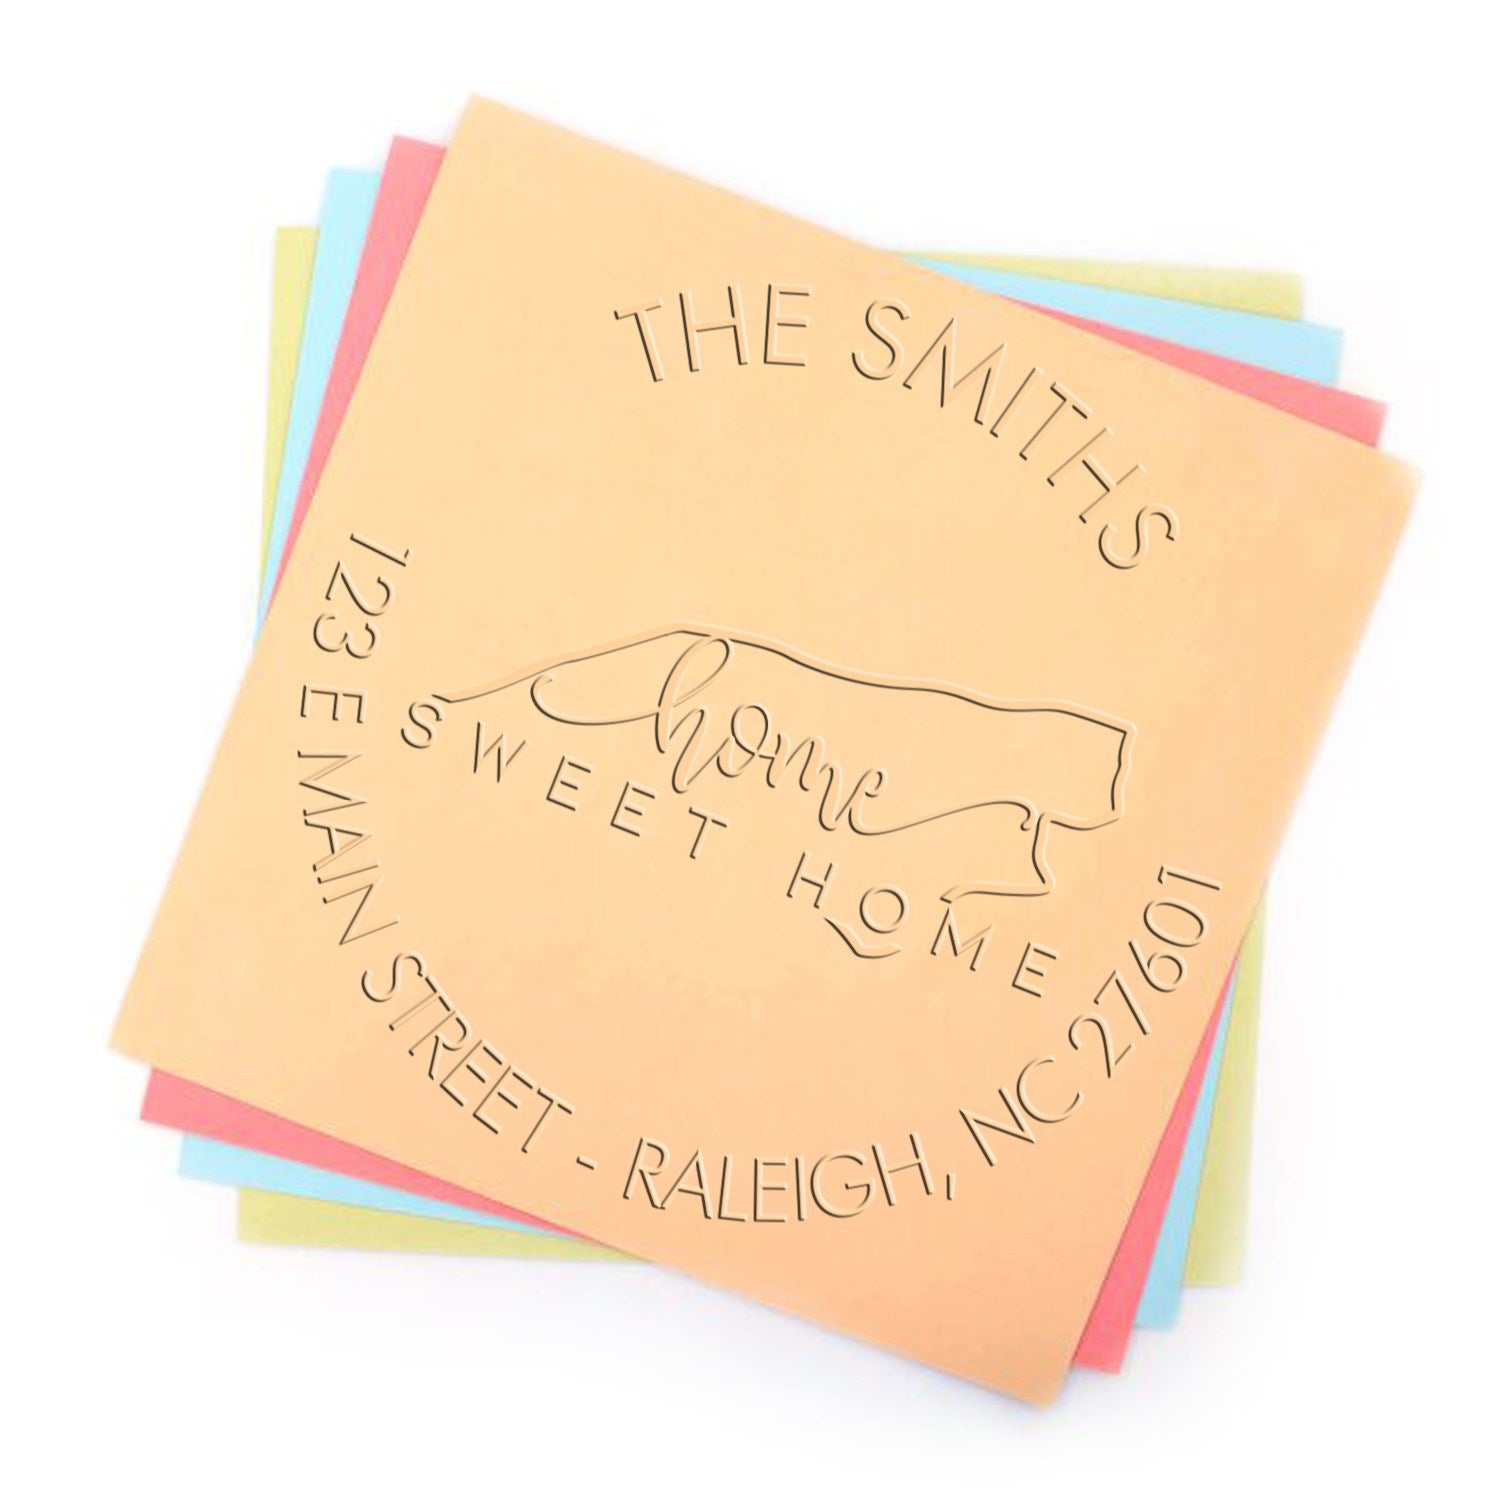 THE SMITHS
home
SWEET HOME
123 E MAIN STREET - RALEIGH, NC 27601